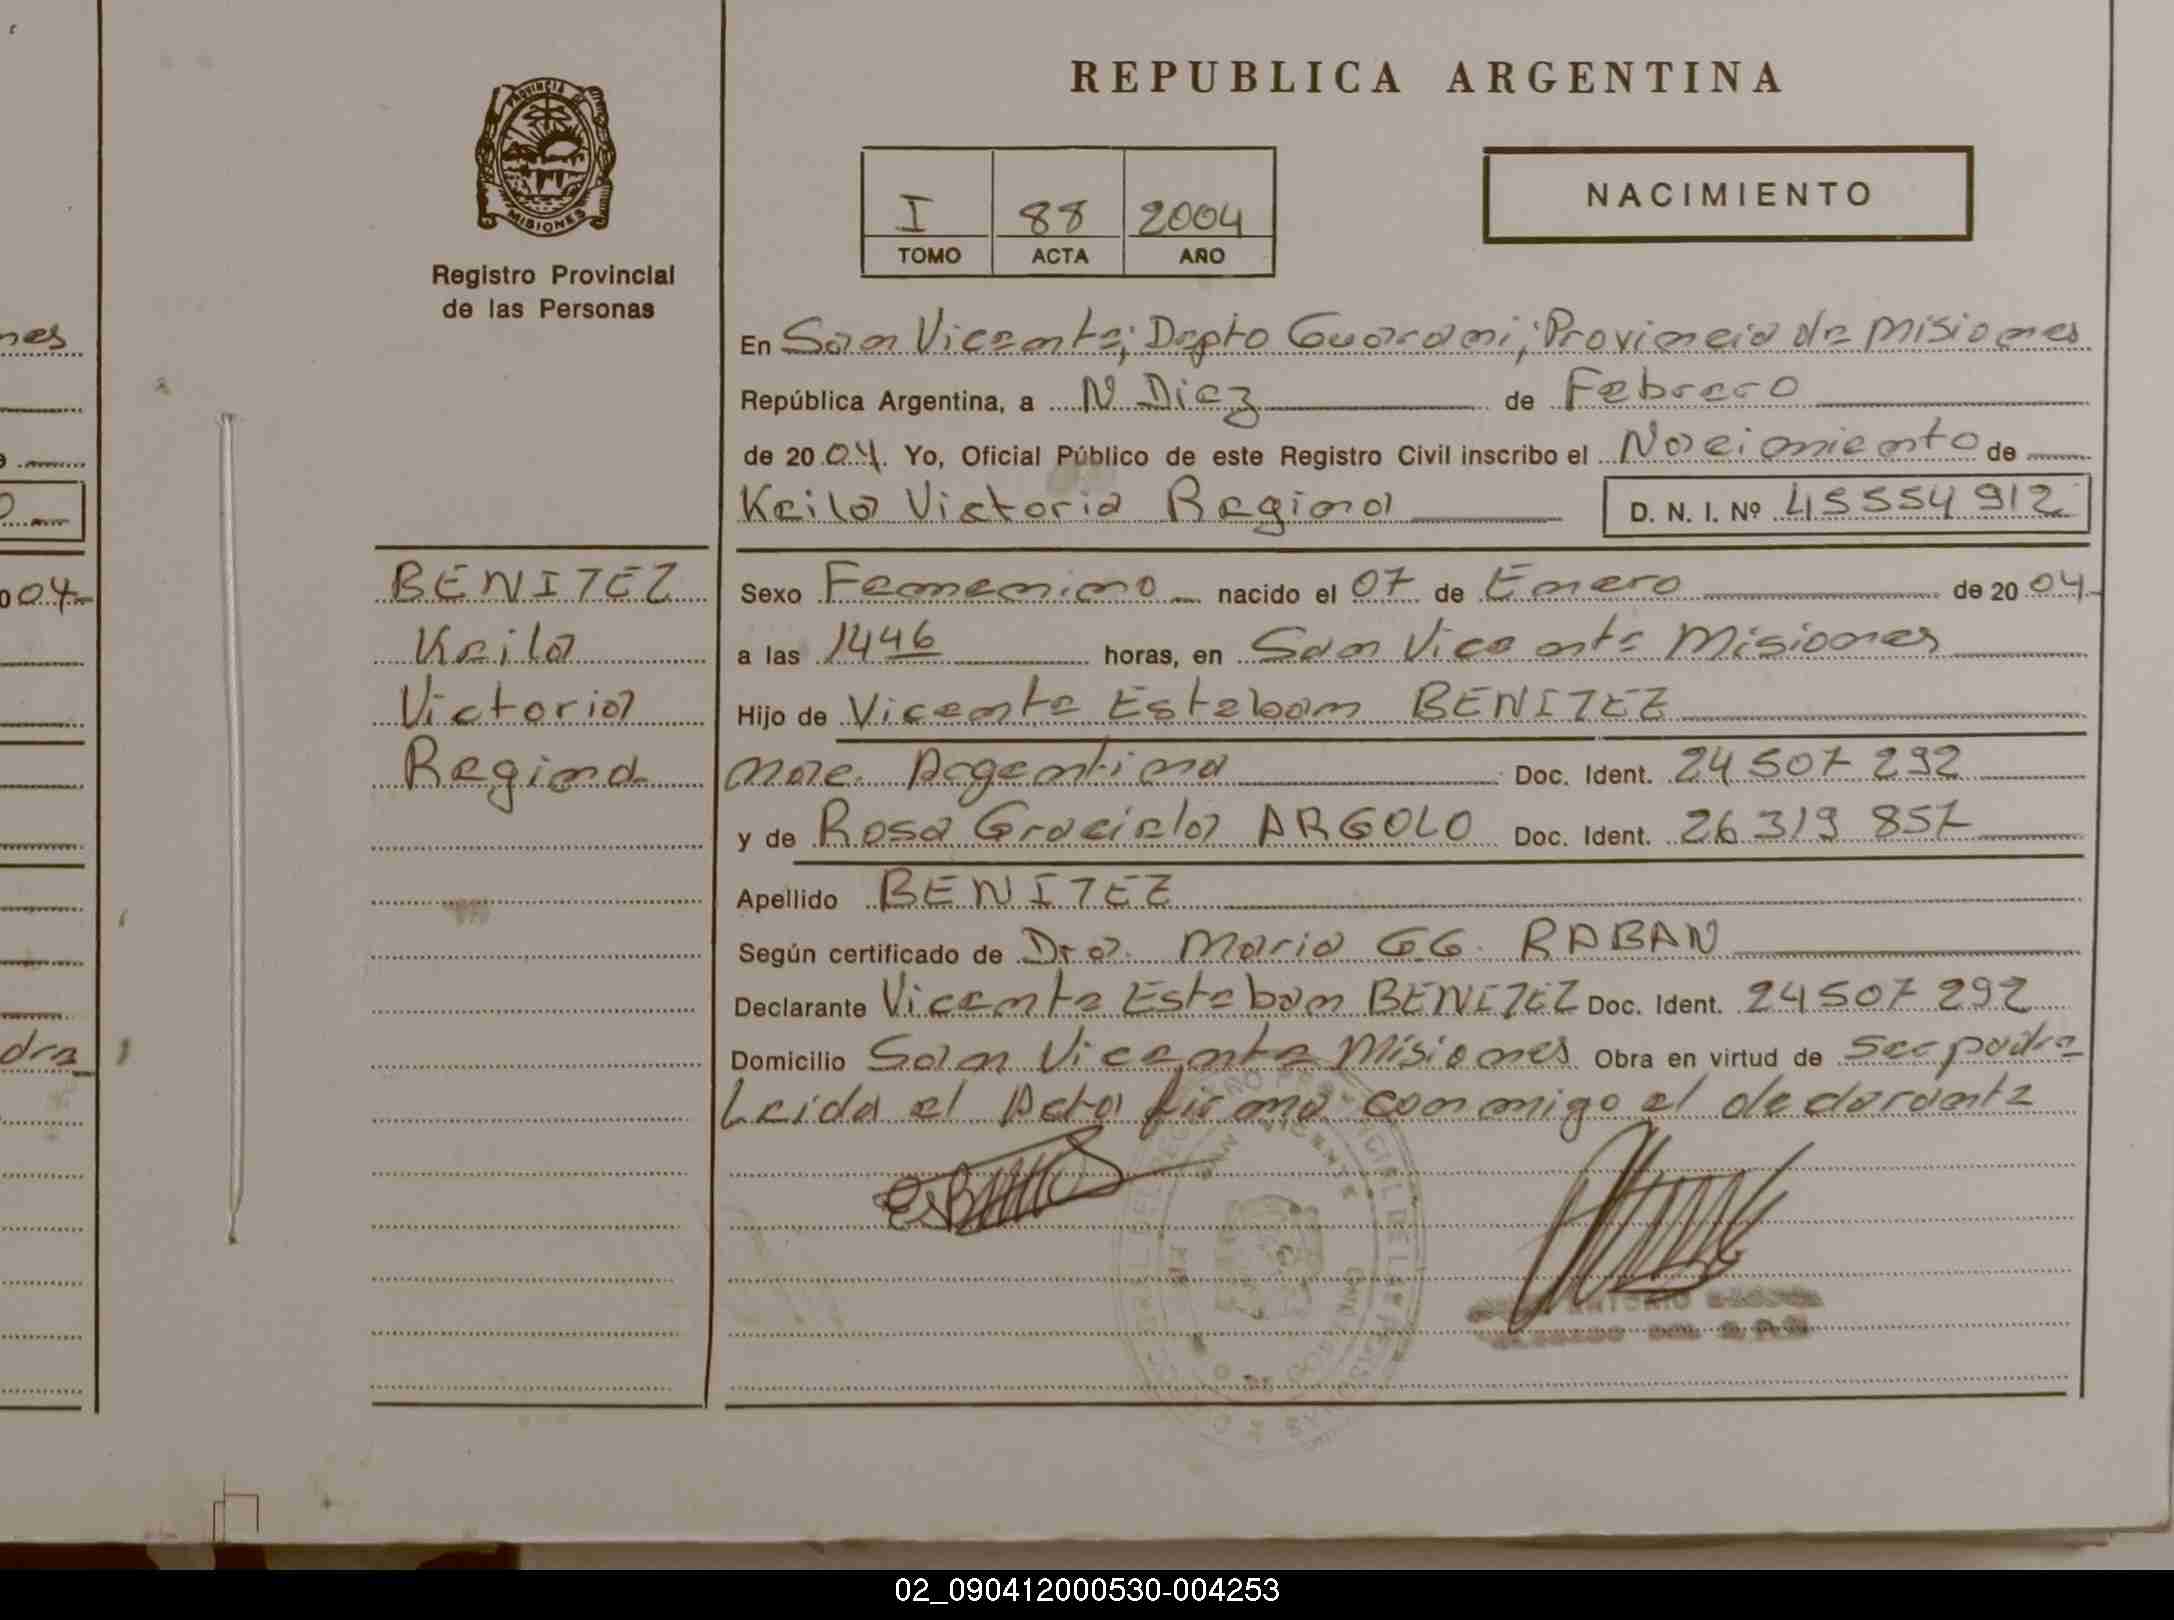 REPUBLICA ARGENTINA
PROVINCIA DE
MISIONES
Registro Provincial
de las Personas
I 88 2004
TOMO ACTA AÑO
NACIMIENTO
En San Vicente; Depto Guarani; Provincia de Misiones
República Argentina, a N Diez de Febrero
de 2004. Yo, Oficial Público de este Registro Civil inscribo el Nacimiento de
Keila Victoria Regina D. N. I. Nº 45554 912
BENITEZ
Keila
Victoria
Regina
Sexo Femenino nacido el 07 de Enero de 2004
a las 1446 horas, en San Vicente Misiones
Hijo de Vicente Esteban BENITEZ
Argentina Doc. Ident. 24 507 292
y de Rosa Graciela ARGOLO Doc. Ident. 26 319 857
Apellido BENITEZ
Según certificado de Dra. Maria GG. RABAN
Declarante Vicente Esteban BENITEZ Doc. Ident. 24 507 292
Domicilio San Vicente Misiones Obra en virtud de Ser padre
Leida el Acta firma conmigo el declarante
SAN VICENTE
ANTONIO
nes
04
dre
02_090412000530-004253